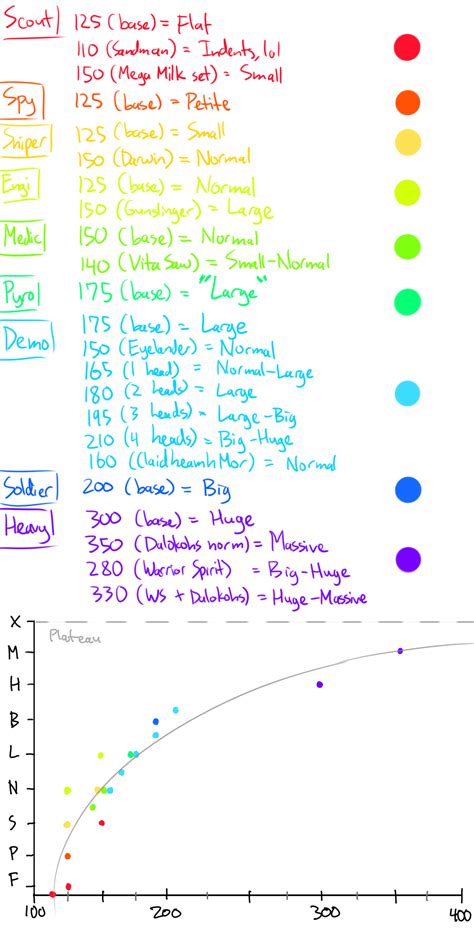 Scout 125 (base) = Flat
110 (Sandman) = Indents, lol
150 (Mega Milk set) = Small
Spy 125 (base) = Petite
Sniper 125 (base) = Small
150 (Darwin) = Normal
Engi 125 (base) = Normal
150 (Gunslinger) = Large
Medic 150 (base) = Normal
140 (VitaSaw) = Small-Normal
Pyro 175 (base) = "Large"
Demo 175 (base) = Large
150 (Eyelander) = Normal
165 (1 head) = Normal-Large
180 (2 heads) = Large
195 (3 heads) = Large-Big
210 (4 heads) = Big-Huge
160 (Claidheamh Mor) = Normal
Soldier 200 (base) = Big
Heavy 300 (base) = Huge
350 (Dalokohs norm) = Massive
280 (Warrior Spirit) = Big-Huge
330 (WS + Dalokohs) = Huge-Massive
X
Plateau
M
H
B
L
N
S
P
F
100 200 300 400